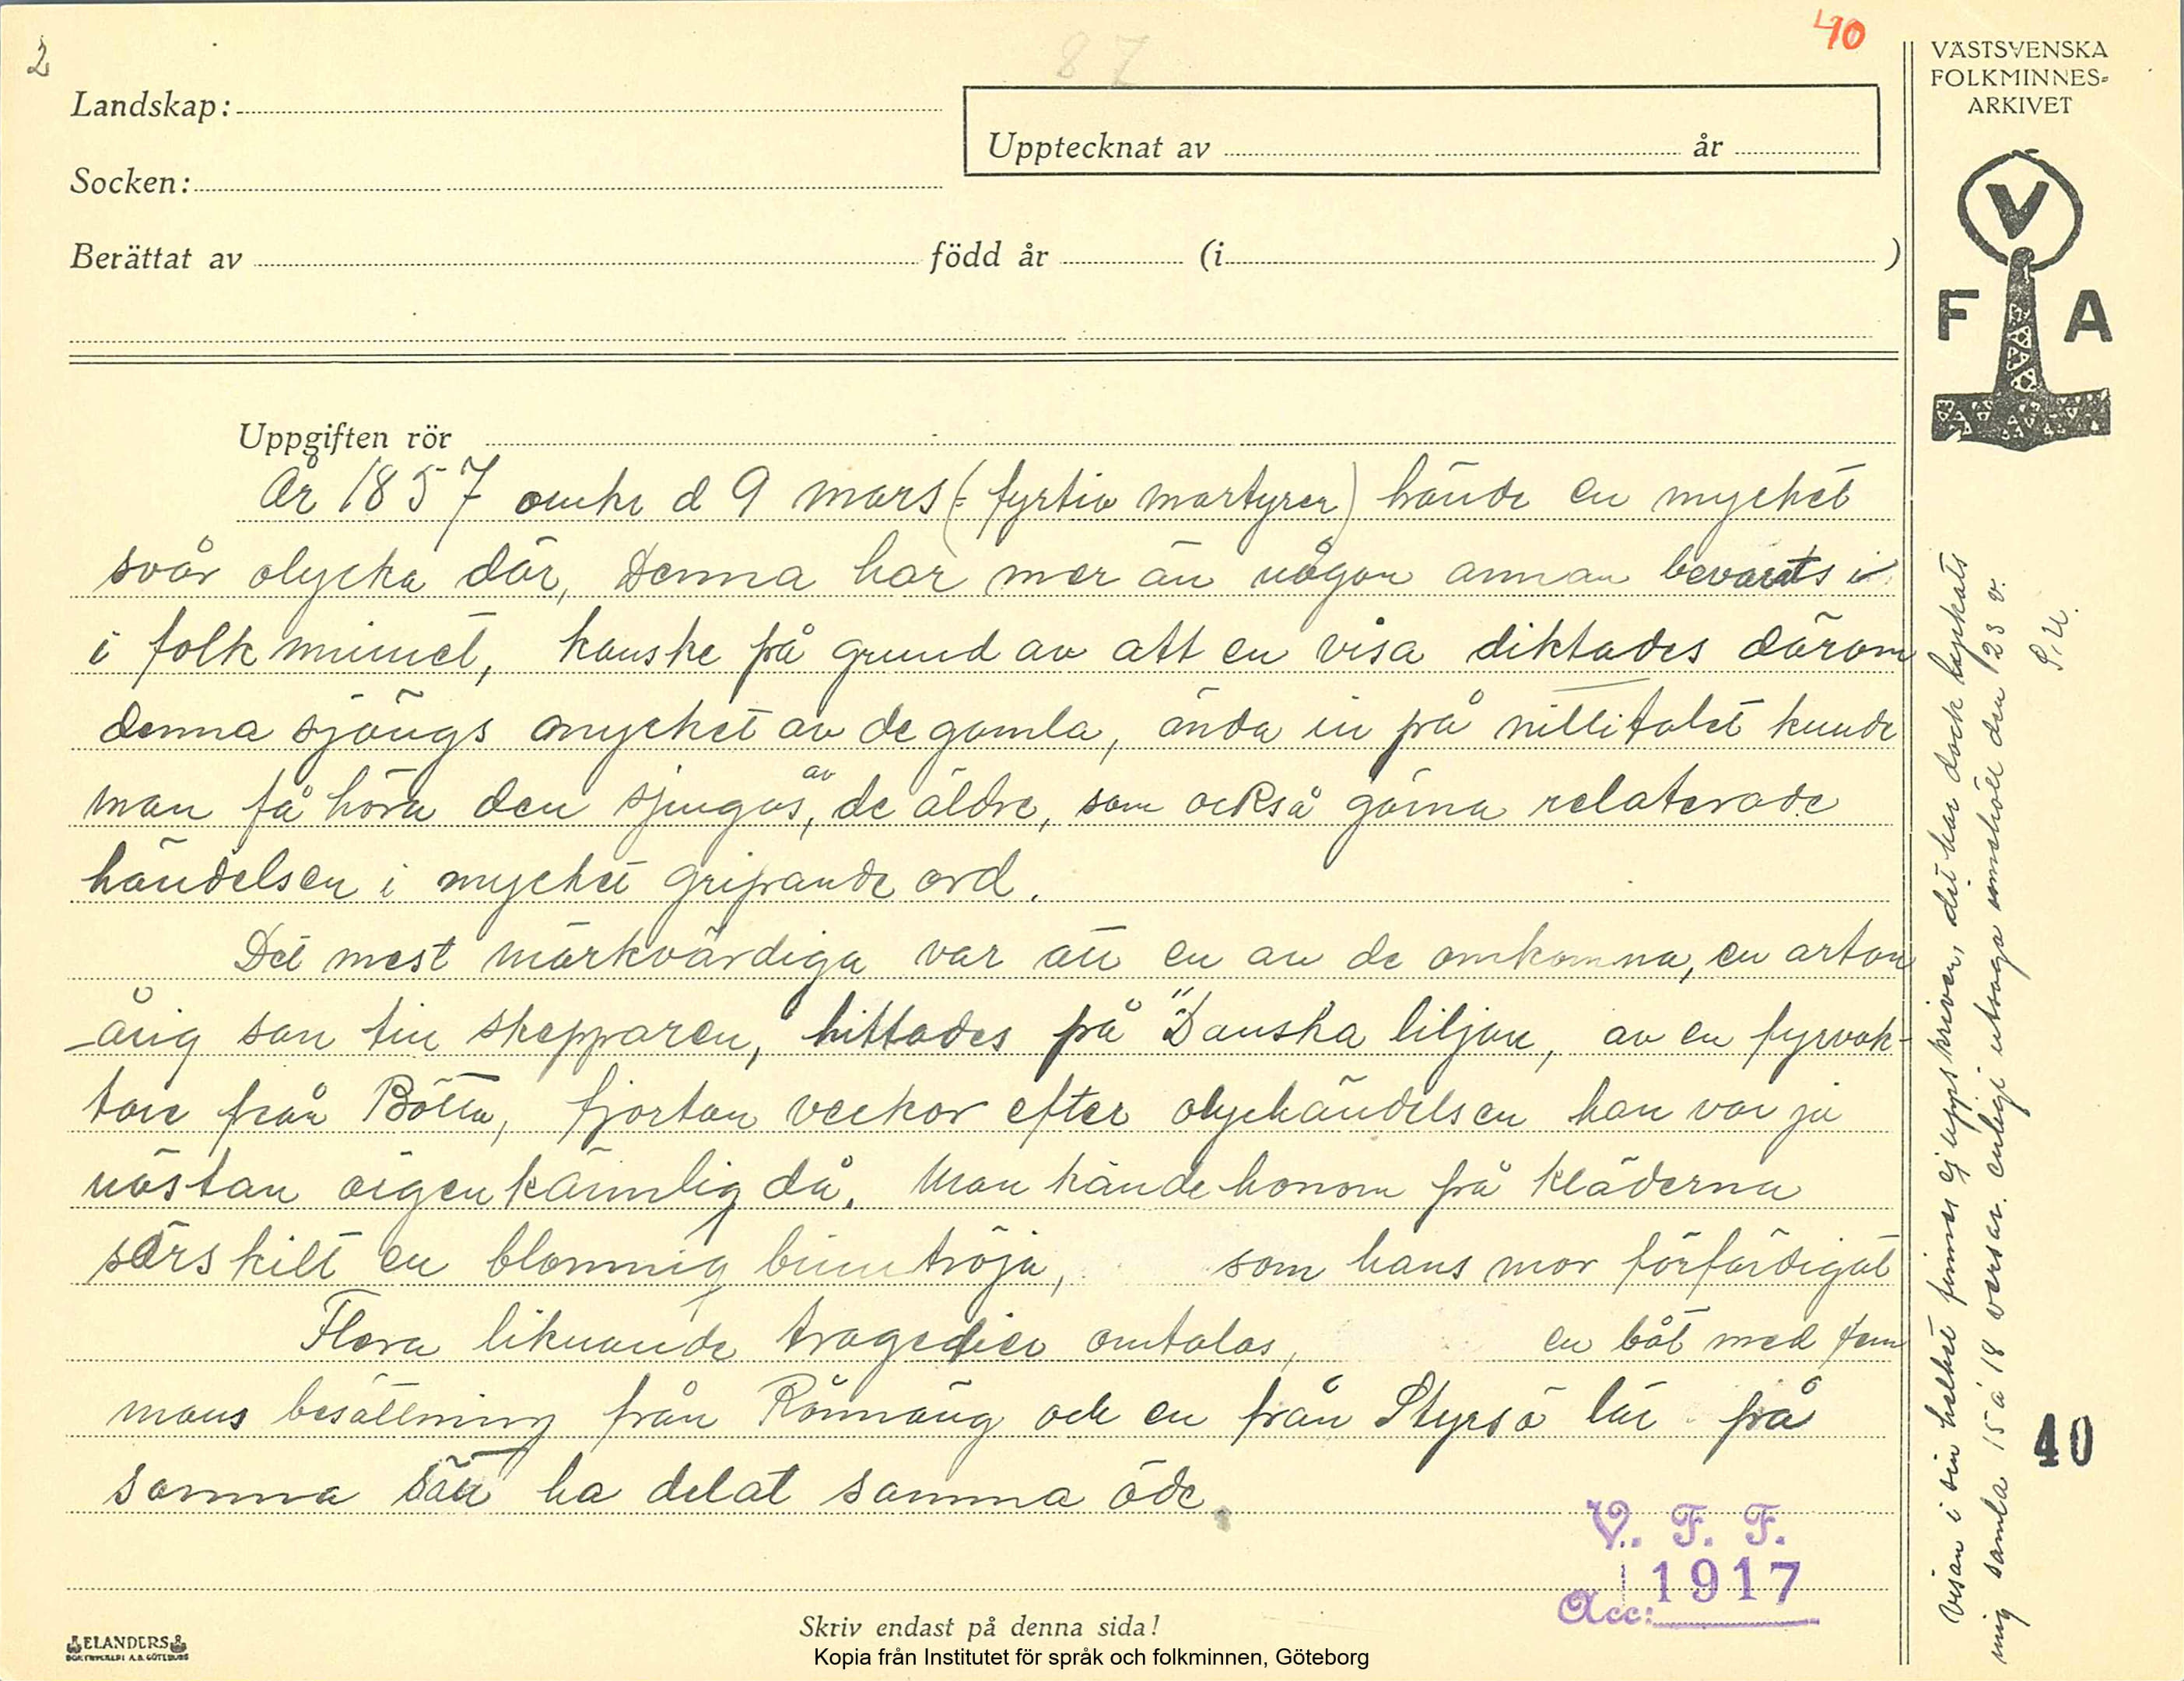 2
87
40
Landskap:
Upptecknat av år
Socken:
Berättat av född år (i )
Uppgiften rör
År 1857 omkr d 9 mars (= fyrtio martyrer) hände en mycket
svår olycka där, Denna har mer än någon annan bevarats i
i folkminnet, kanske på grund av att en visa diktades därom
denna sjöngs mycket av de gamla, ända in på nittitalet kunde
man få höra den sjungas, av de äldre, som också gärna relaterade
händelsen i mycket gripande ord.
Det mest märkvärdiga var att en av de omkomna, en arton
årig son till skepparen, hittades på "Danska liljan, av en fyrvak-
tare från Böttö, fjorton veckor efter olyckshändelsen han var ju
nästan oigenkännlig då. Man kände honom på kläderna
särskilt en blommig bunntröja, som hans mor förfärdigat
Flera liknande tragedier omtalas, en båt med fem
mans besättning från Rönnäng och en från Styrsö lär på
samma sätt ha delat samma öde.
V. F. F.
Acc: 1917
Skriv endast på denna sida!
ELANDERS
BOKTRYCKERI A.B. GÖTEBORG
Kopia från Institutet för språk och folkminnen, Göteborg
VÄSTSVENSKA
FOLKMINNES-
ARKIVET
V
F A
Visan i sin helhet finnes ej uppskriven, det har dock lyckats
mig samla 15 à 18 verser. enligt utsaga innehöll den 23 v.
40